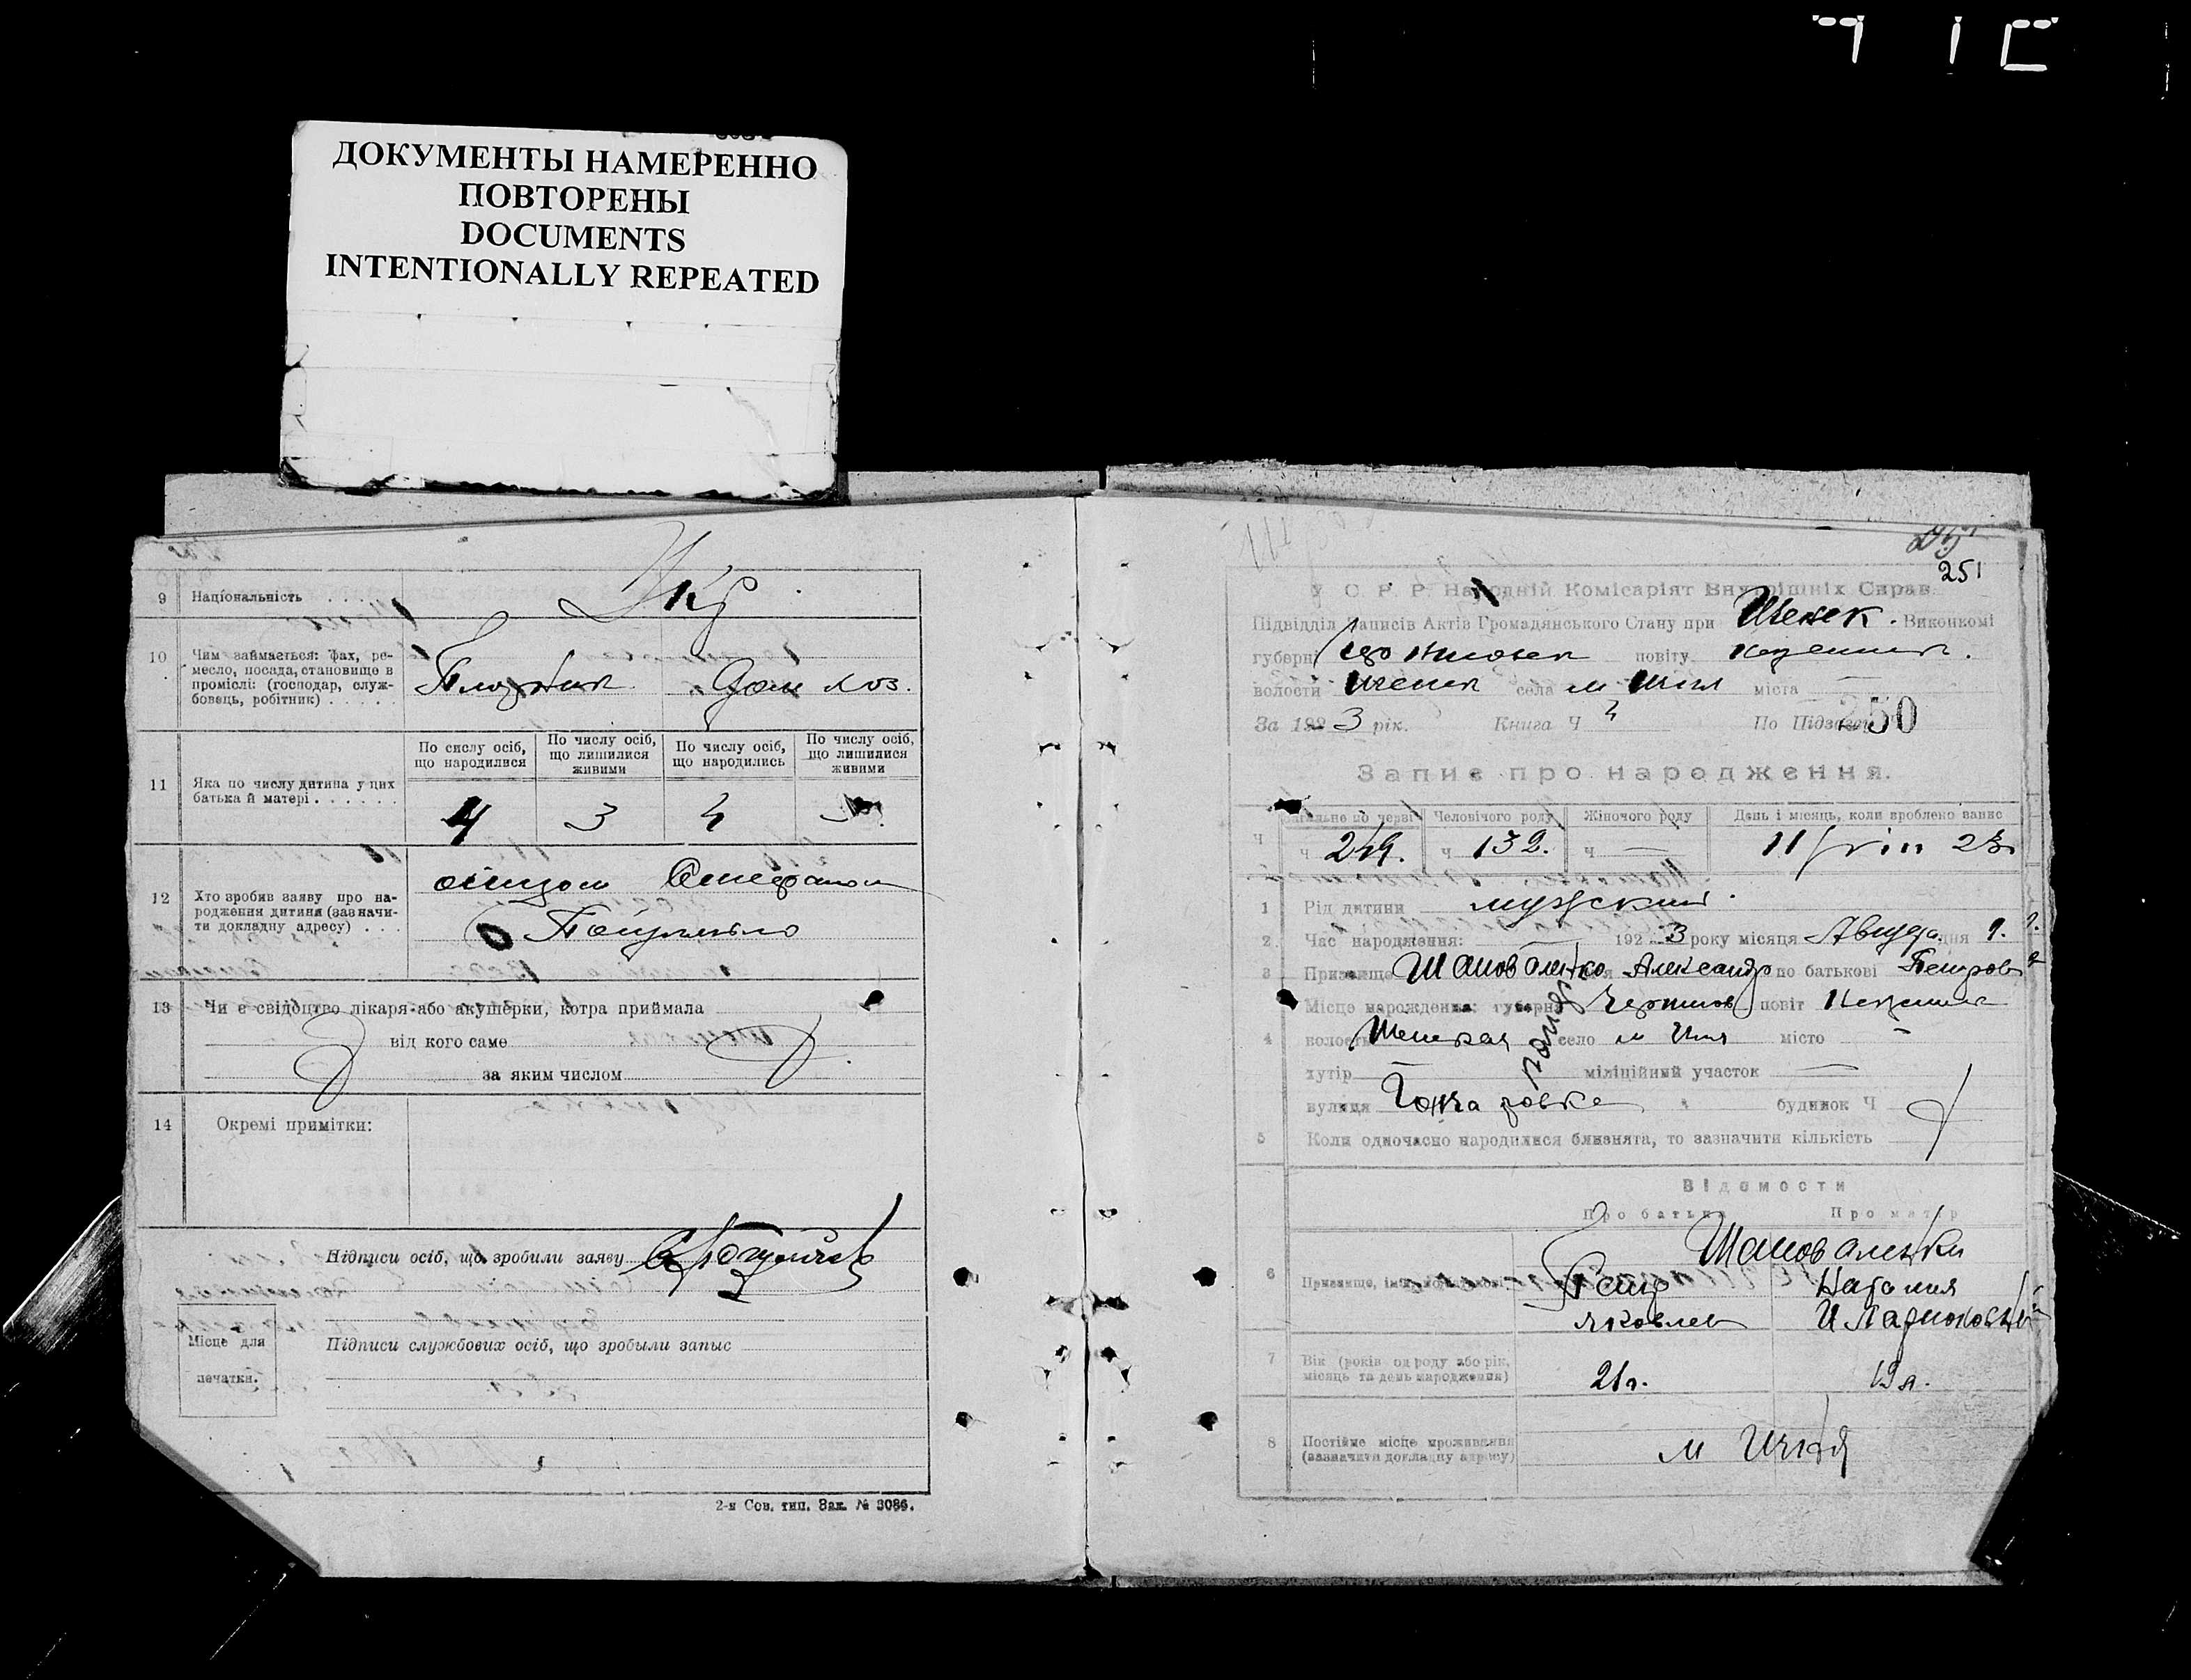 ДОКУМЕНТЫ НАМЕРЕННО
ПОВТОРЕНЫ
DOCUMENTS
INTENTIONALLY REPEATED
9 Національність . . . . Укр
10 Чим займається: фах, ре-
месло, посада, становище в
промислі: (господар, служ-
бовець, робітник) . . . . .
Плотник Дом хоз.
11 Яка по числу дитина у цих
батька й матері . . . . . .
По сислу осіб,
що народилися
По числу осіб,
що лишилися
живими
По числу осіб,
що народились
По числу осіб,
що лишилися
живими
4 3 4
12 Хто зробив заяву про на-
родження дитини (зазначи-
ти докладну адресу) . . .
отцом Стефаном
13 Чи є свідоцтво лікаря-або акушерки, котра приймала
від кого саме
за яким числом
14 Окремі примітки:
Підписи осіб, що зробили заяву
Місце для
печатки.
Підписи службових осіб, що зробыли запыс
2-я Сов. тип. Зак. № 3086.
251
У. С. Р. Р. Народній Комісаріят Внутрішніх Справ.
Підвідділ Записів Актів Громадянського Стану при Ичнск. Виконкомі
губерн Черниговск повіту Нежинск.
волости Иченск села м Ичня міста —
За 1923 рік. Книга Ч По Підзагом 250
Запис про народження.
Загальне по черві Человічого роду Жіночого роду День і місяць, коли зроблено запис
Ч ч 249. ч 132. ч — 11/VIII 23
1 Рід дитини мужской.
2 Час народження: 1923 року місяця Августа дня 9.
3 Призвище Шаповаленко Александр по батькові Петров
4 Місце народження: губерн Чернигов повіт Нежинск
волость Иченская село м Ичня місто —
хутір — міліційний участок —
вулиця Гончаровка будинок Ч
5 Коли одночасно народилися близнята, то зазначити кількість
Відомости
Про батька Про матір
Шаповаленки
6 Призвище, ім'я
Петр Наталия
Яковлев Иларионовна
7 Вік (років од роду або рік,
місяць та день народження)
21 г. 19 л.
8 Постійне місце проживання
(зазначити докладну адресу)
м Ичня